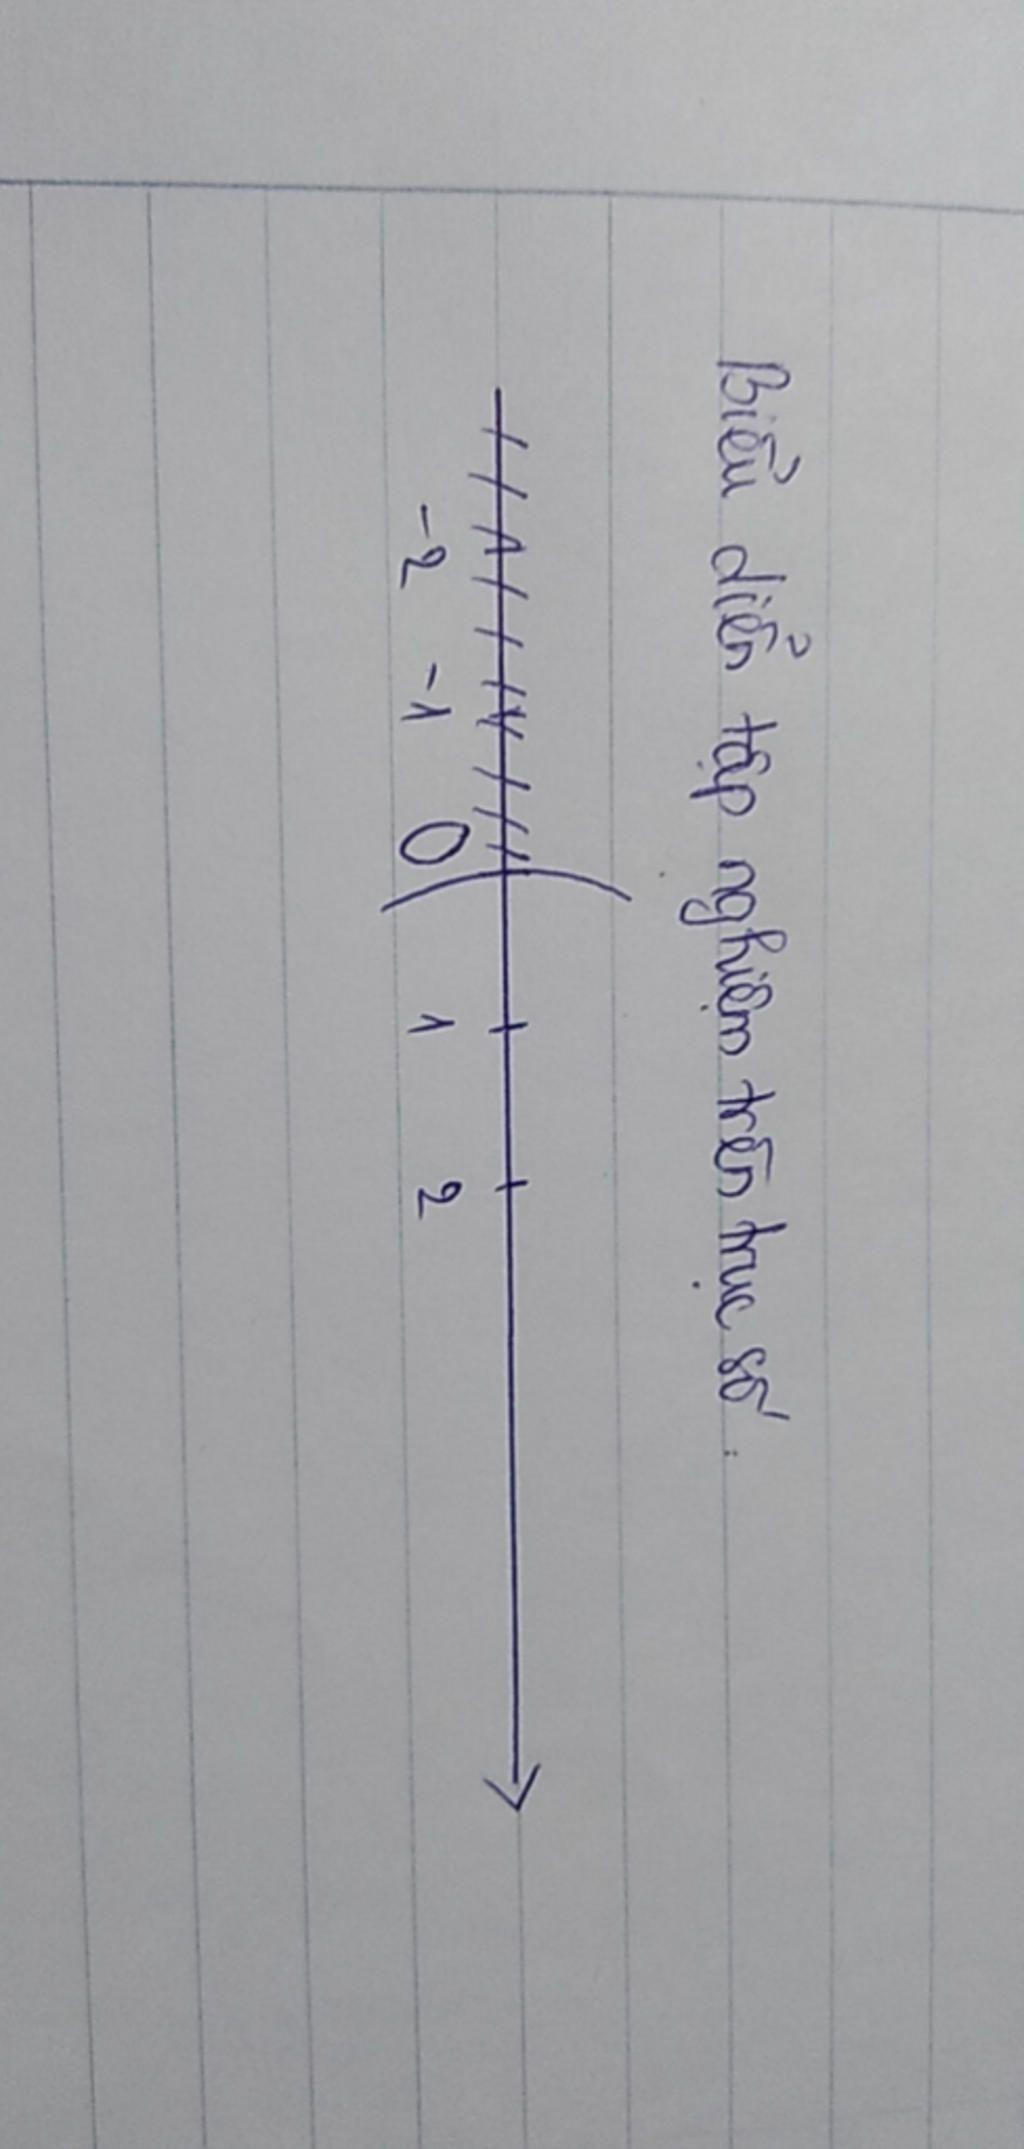 Biểu diển tập nghiệm trên trục số :
-2 -1 0 1 2